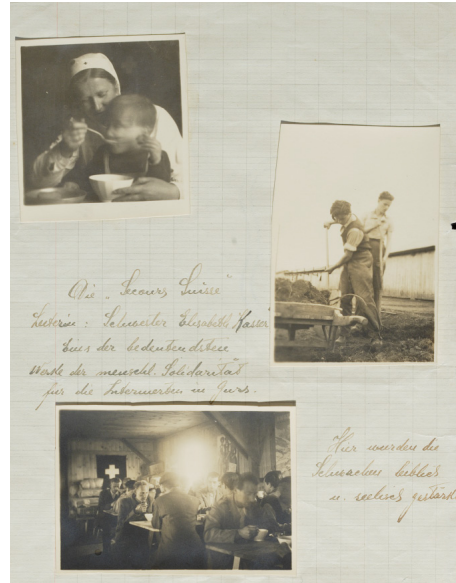 Die "Secours Suisse"
Leiterin: Schwester Elsbeth Kasser
Eines der bedeutendsten
Werke der menschl. Solidarität
für die Internierten in Gurs.
Hier wurden die
Schwachen leiblich
u. seelisch gestärkt